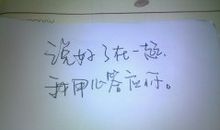 说好了在一起,
我用心答应你。